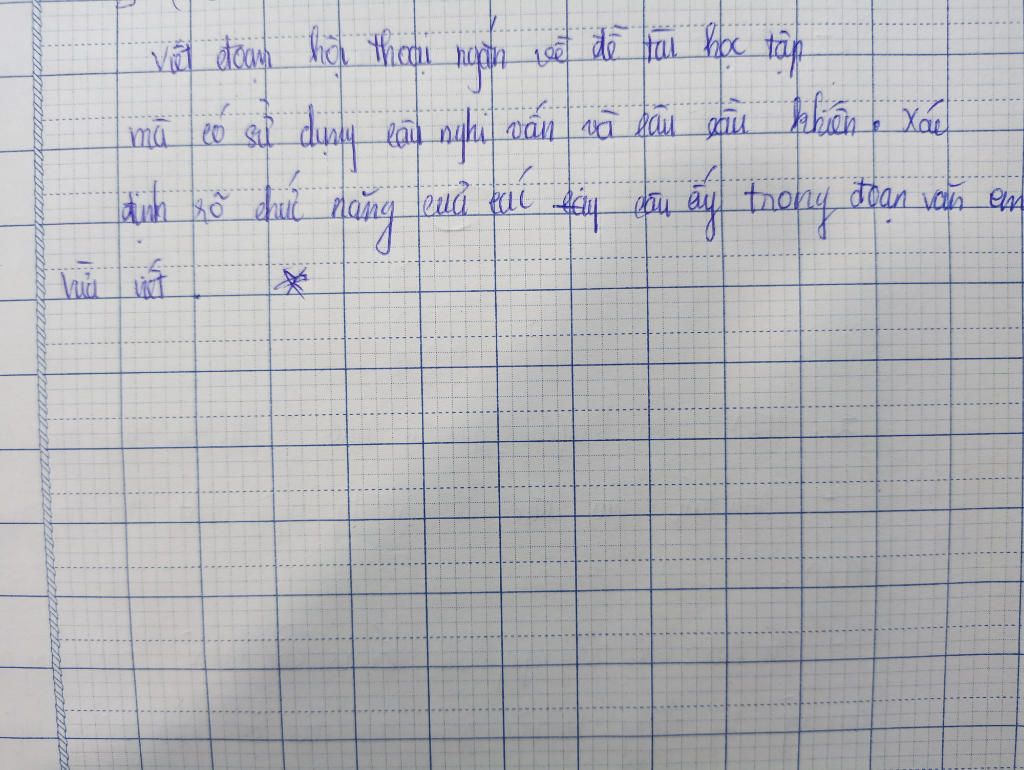 Viết đoạn hội thoại ngắn về đề tài học tập
mà có sử dụng câu nghi vấn và câu cầu khiến. Xác
định rõ chức năng của các câu ấy trong đoạn văn em
vừa viết.